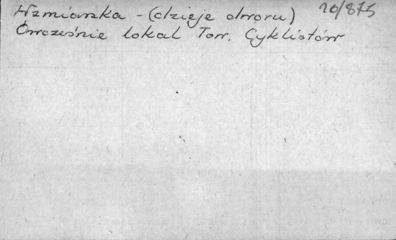 Wzmianka - (dzieje dworu) 10/875
Ówcześnie lokal Tow. Cyklistów